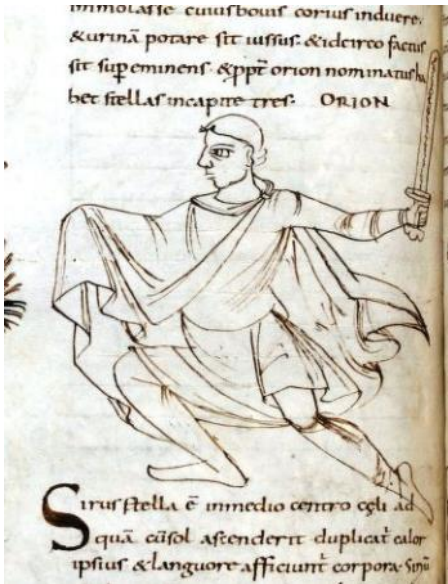 immolasse cuiusbovis corius induere.
&urinā potare sit iussus. &idcirco factus
sit sup eminens. &ppt̄ orion nominatus ha
bet stellas incapite tres. ORION
Sirus stella ē inmedio centro cęli ad
quā cūsol ascenderit duplicat̄ calor
ipsius &languore afficiunt̄ corpora. Sinū